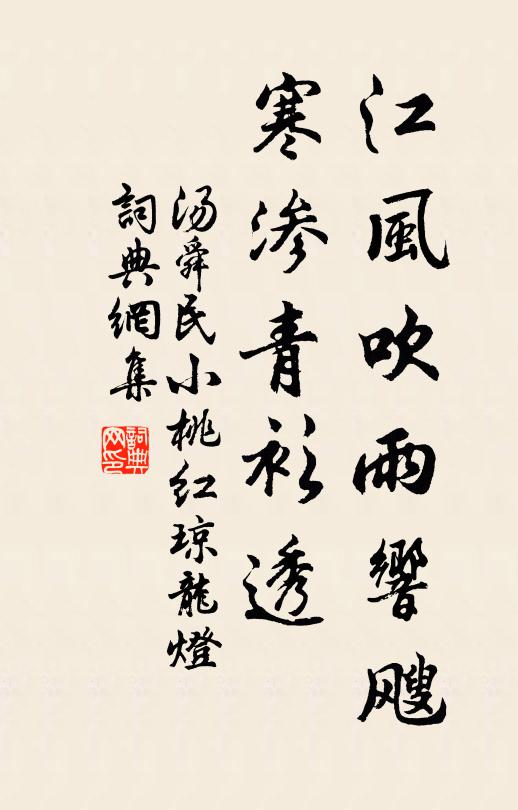 江風吹雨響颼
寒渗青衫透
汤舜民小桃红琼龍燈
詞典網集
詞典网印